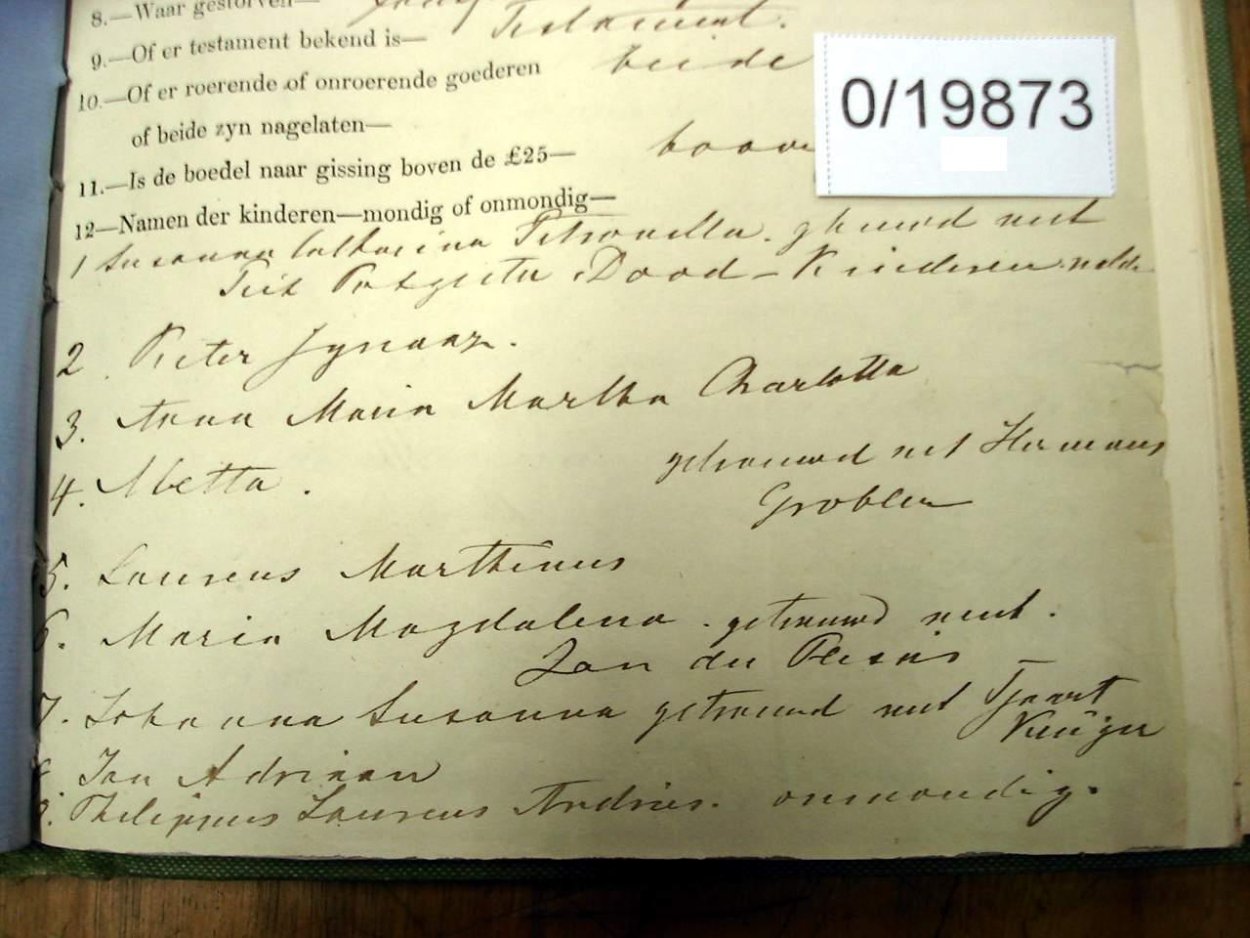 8.—Waar gestorven—
9.—Of er testament bekend is— Testament.
10.—Of er roerende of onroerende goederen beide
of beide zyn nagelaten—
11.—Is de boedel naar gissing boven de £25— boven
0/19873
12—Namen der kinderen—mondig of onmondig—
1 Susanna Catharina Petronella. getrouwd met
Piet Potgieter Dood – Kinderen
2 Pieter Ignaaz.
3. Anna Maria Martha Charlotta
4. Aletta. getrouwd met Hermanus
Grobler
5. Laurens Marthinus
6. Maria Magdalena. getrouwd met.
Jan du Plesis –
7. Johanna Susanna getrouwd met Tjaart
Kruger
8. Jan Adriaan
9. Philippus Laurens Andries. onmondig.